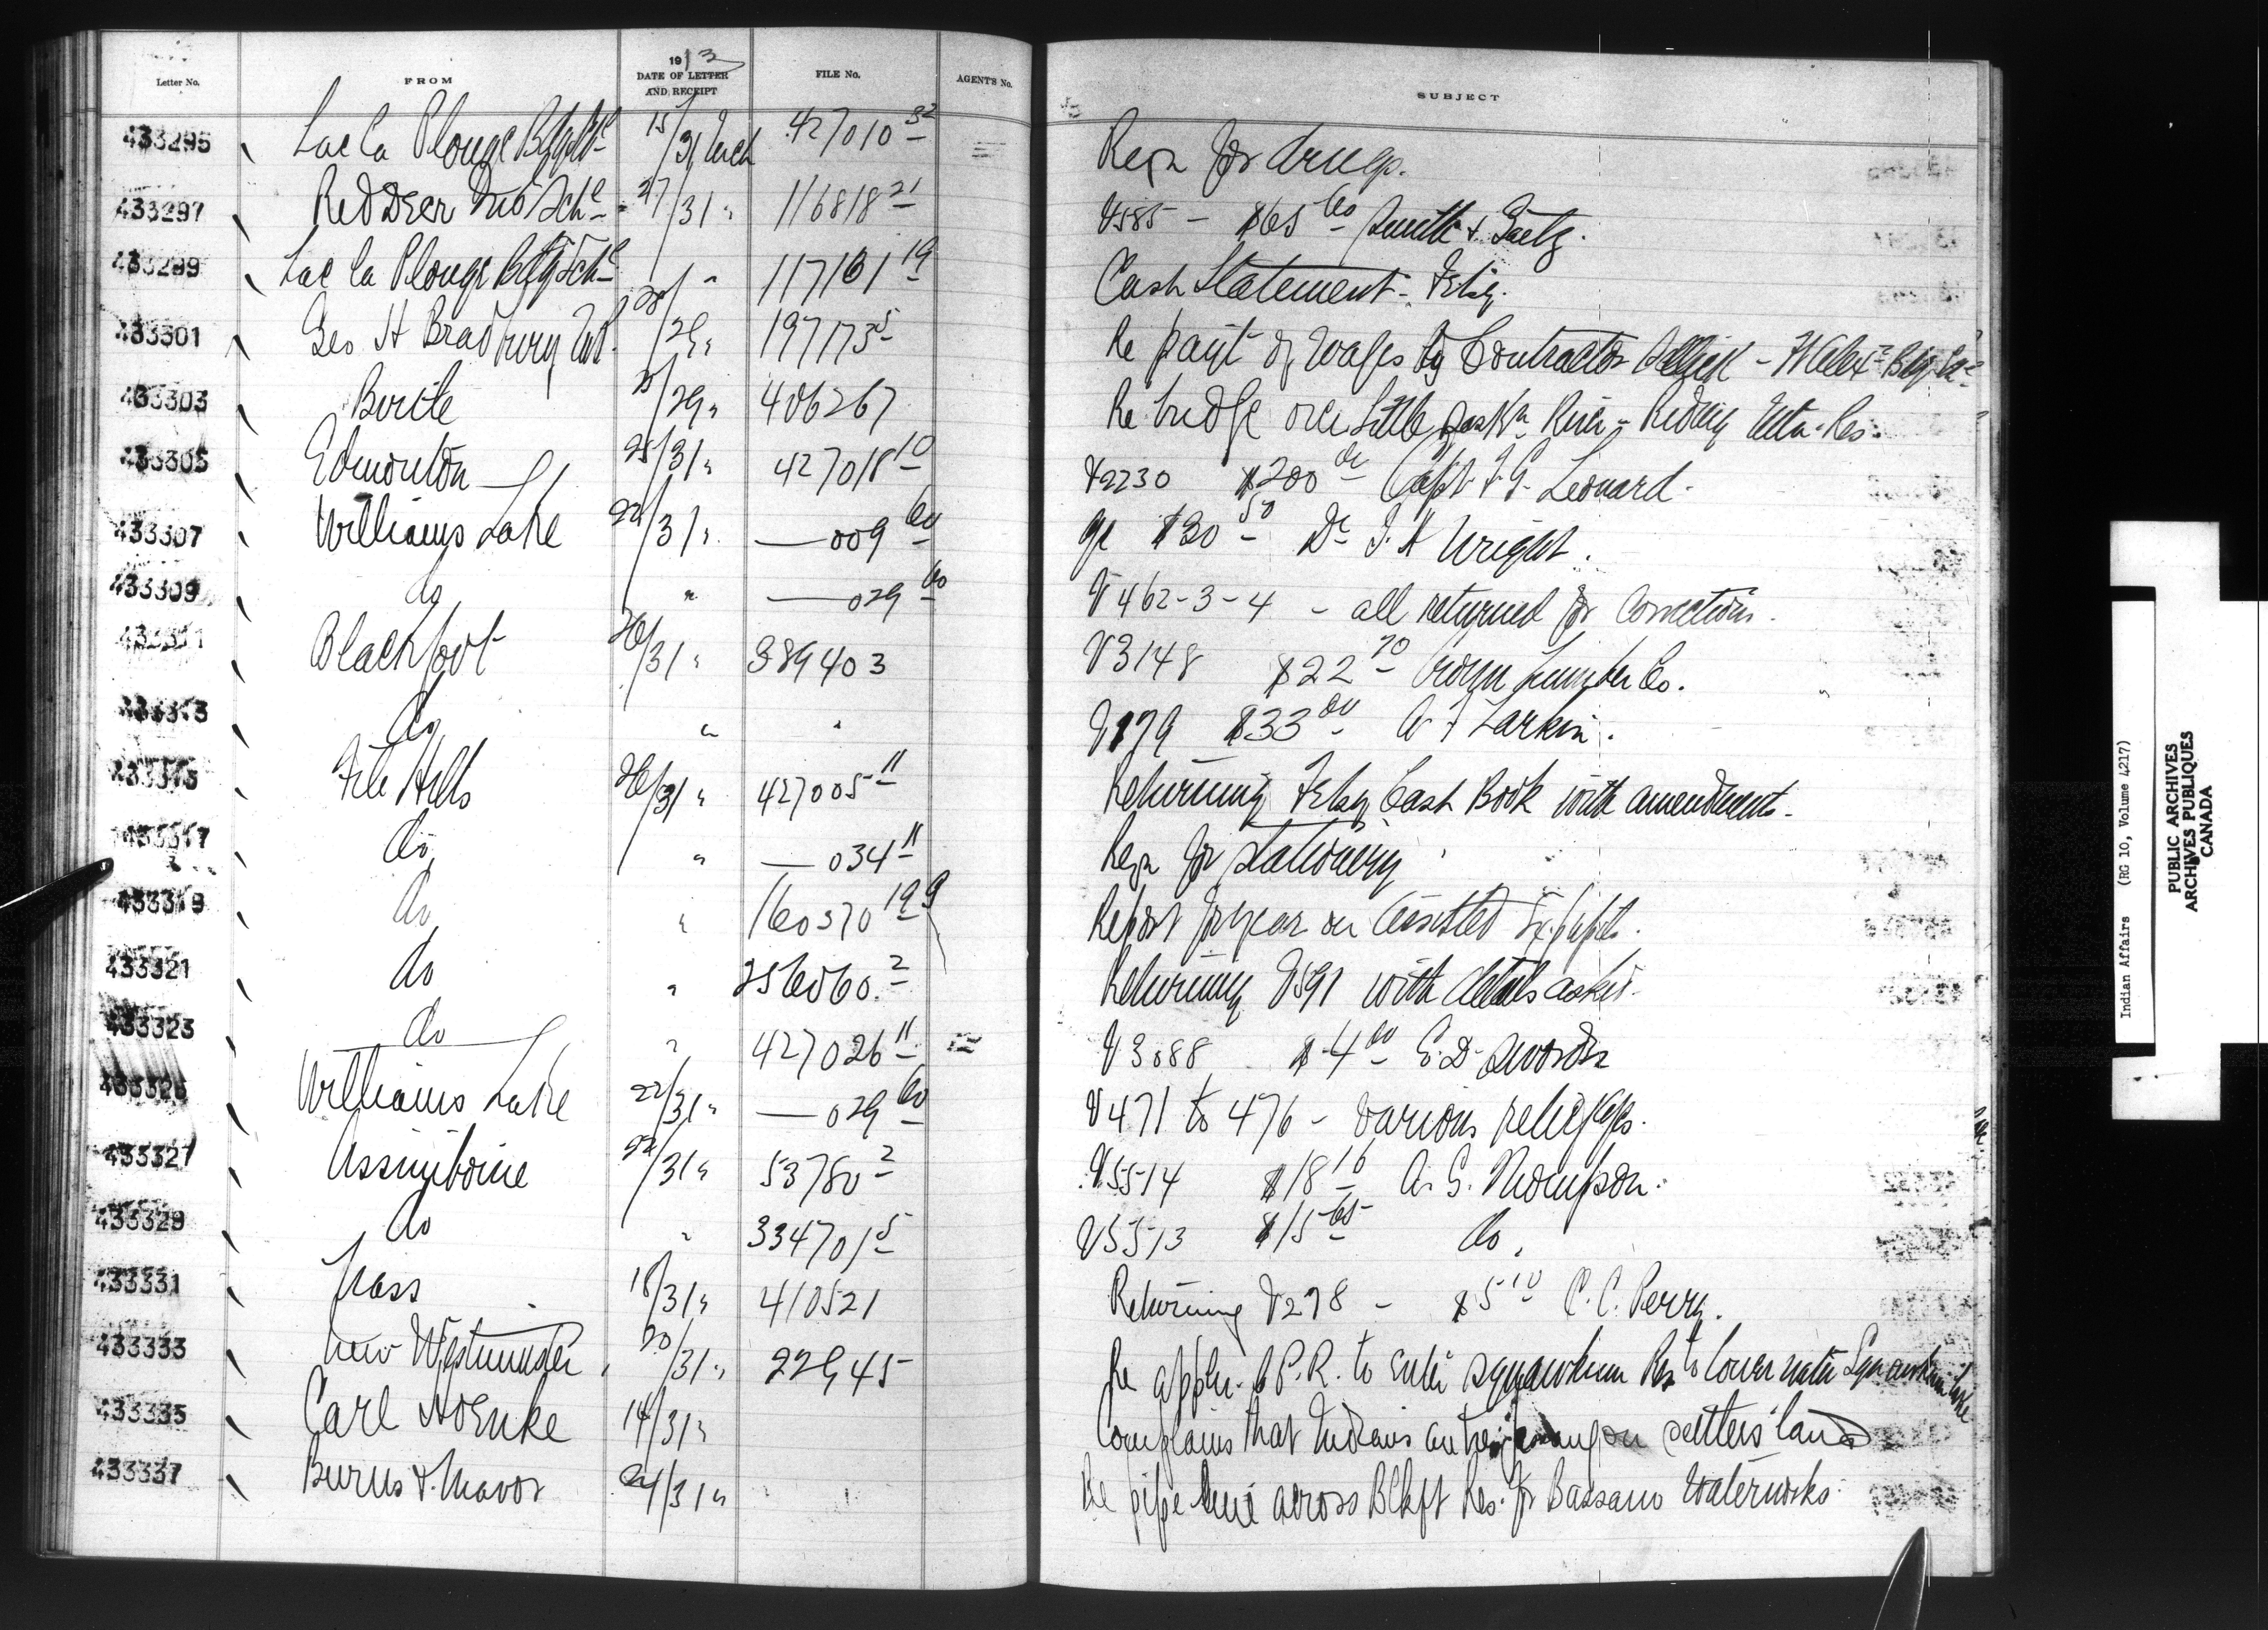 Letter No. FROM 1913 DATE OF LETTER AND RECEIPT FILE No. AGENT'S No. SUBJECT
433295 Lac la Plonge 15/31 Mch 427010 32 Reqn for drugs.
433297 Red Deer Ind Schl 27/31 " 116818 21 V585 - $65 60 Smith & Gaetz.
433299 Lac la Plonge Bdg Schl " 117161 19 Cash Statement - Feby.
433301 Geo H Bradbury 28/29 " 197173 5 Re payt of wages by Contractor
433303 Birtle 25/29 " 406267 Re bridge over Little Sask'n River - Riding Mtn Res.
433305 Edmonton 25/31 " 427018 10 V2230 $200 00 Capt F. G. Leonard.
433307 Williams Lake 22/31 " — 009 60 $30 50 Dr J. H Wright.
433309 do " — 029 60 V462-3-4 - all returned for corrections.
433311 Blackfoot 26/31 " 389403 V3148 $22 70 Crown Lumber Co.
433313 do " " V179 $33 00 A F Larkin.
433315 File Hills 26/31 " 427005 11 Returning Feby Cash Book with amendments.
433317 do " — 034 11 Reqn for stationery
433319 do " 160370 19 Report for year on Assisted Ex.pupils.
433321 do " 256060. 2 Returning V591 with details asked.
433323 do " 427026 11 V3088 $4 00 E. D. Sworder
433325 Williams Lake 22/31 " — 029 60 V471 to 476 - various relief
433327 Assiniboine 22/31 " 53780 2 V5514 $18 16 A. S. Thompson.
433329 do " 334701 5 V5513 $15 65 do.
433331 Nass 18/31 " 410521 Returning V278 - $5 10 C. C. Perry.
433333 New Westminster 20/31 " 22945 Re appln. to enter Squawkum Res to lower water Squawkum Lake
433335 Carl 14/31 " Complains that Indians are on settlers' land
433337 Burns & Mavor 24/31 " Re pipe line across Blkft Res. for Bassano Waterworks.
Indian Affairs (RG 10, Volume 4217)
PUBLIC ARCHIVES
ARCHIVES PUBLIQUES
CANADA